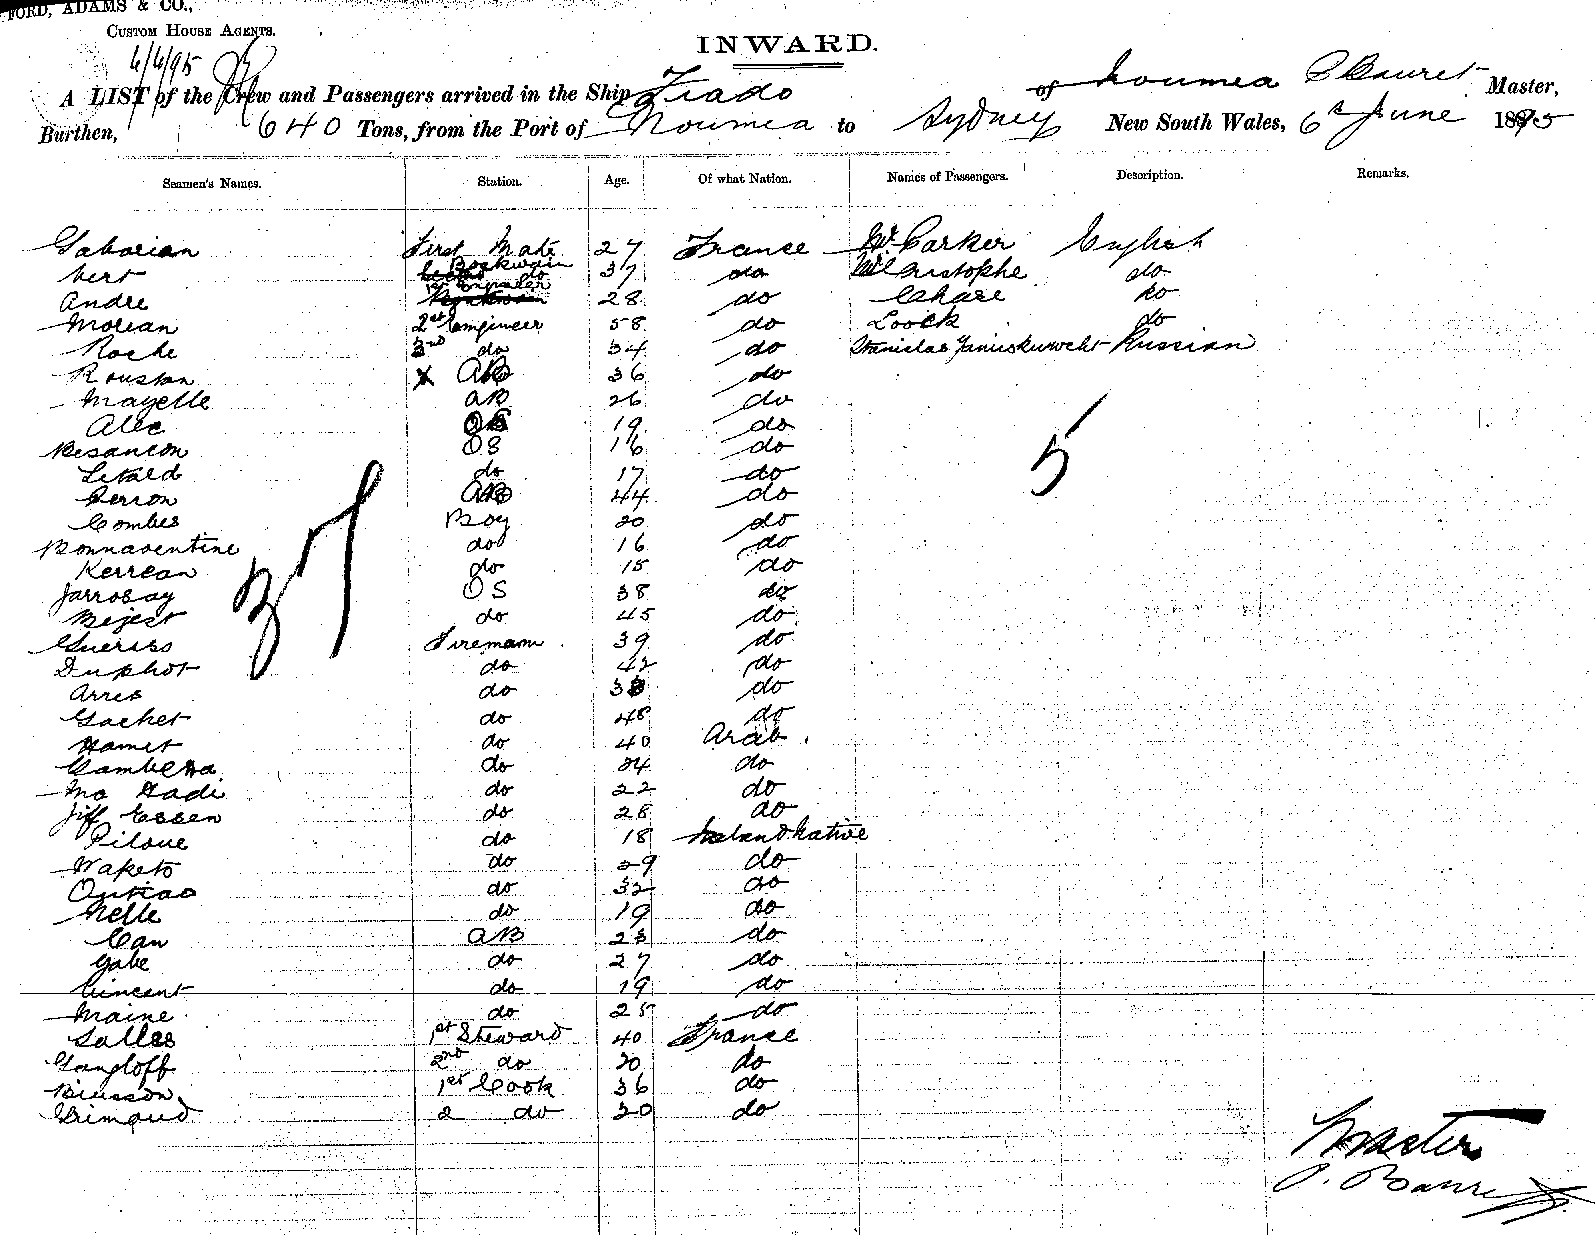 FORD, ADAMS & CO.,
CUSTOM HOUSE AGENTS.
6/6/95
INWARD.
A LIST of the Crew and Passengers arrived in the Ship Tiado of Noumea P Bauret Master,
Burthen, 640 Tons, from the Port of Noumea to Sydney New South Wales, 6th June 1895
Seamen's Names. Station. Age. Of what Nation. Names of Passengers. Description. Remarks.
Saborian First Mate 27 France Mr Parker English
Vert Boatswain do 37 do Mr Cristophe do
Andre 1st Engineer 28 do Chase do
Morean 2nd Engineer 58 do Loock do
Roche 3rd do 34 do Stanislas Russian
Roustan X AB 36 do
Mayelle AB 26 do
Alec OS 19 do
Besancon OS 16 do
Letald do 17 do
Perron AB 44 do
Combes Boy 20 do
Bonnaventine do 16 do
Kerrean do 15 do
Jarrosay OS 38 do
Beject do 45 do
Gueriss Fireman 39 do
Duphot do 42 do
Arres do 38 do
Gachet do 48 do
Hamet do 40 Arab.
Gambetta do 24 do
Mo Hadi do 22 do
Jiff Essen do 28 do
Piloue do 18 Island Native
Waketo do 29 do
do 32 do
Nelle do 19 do
Can AB 23 do
Gabe do 27 do
Vincent do 19 do
Maine do 25 do
Salles 1st Steward 40 France
Gangloff 2nd do 20 do
Buisson 1st Cook 36 do
Grimaud 2 do 20 do
37
5
Master
P. Bauret